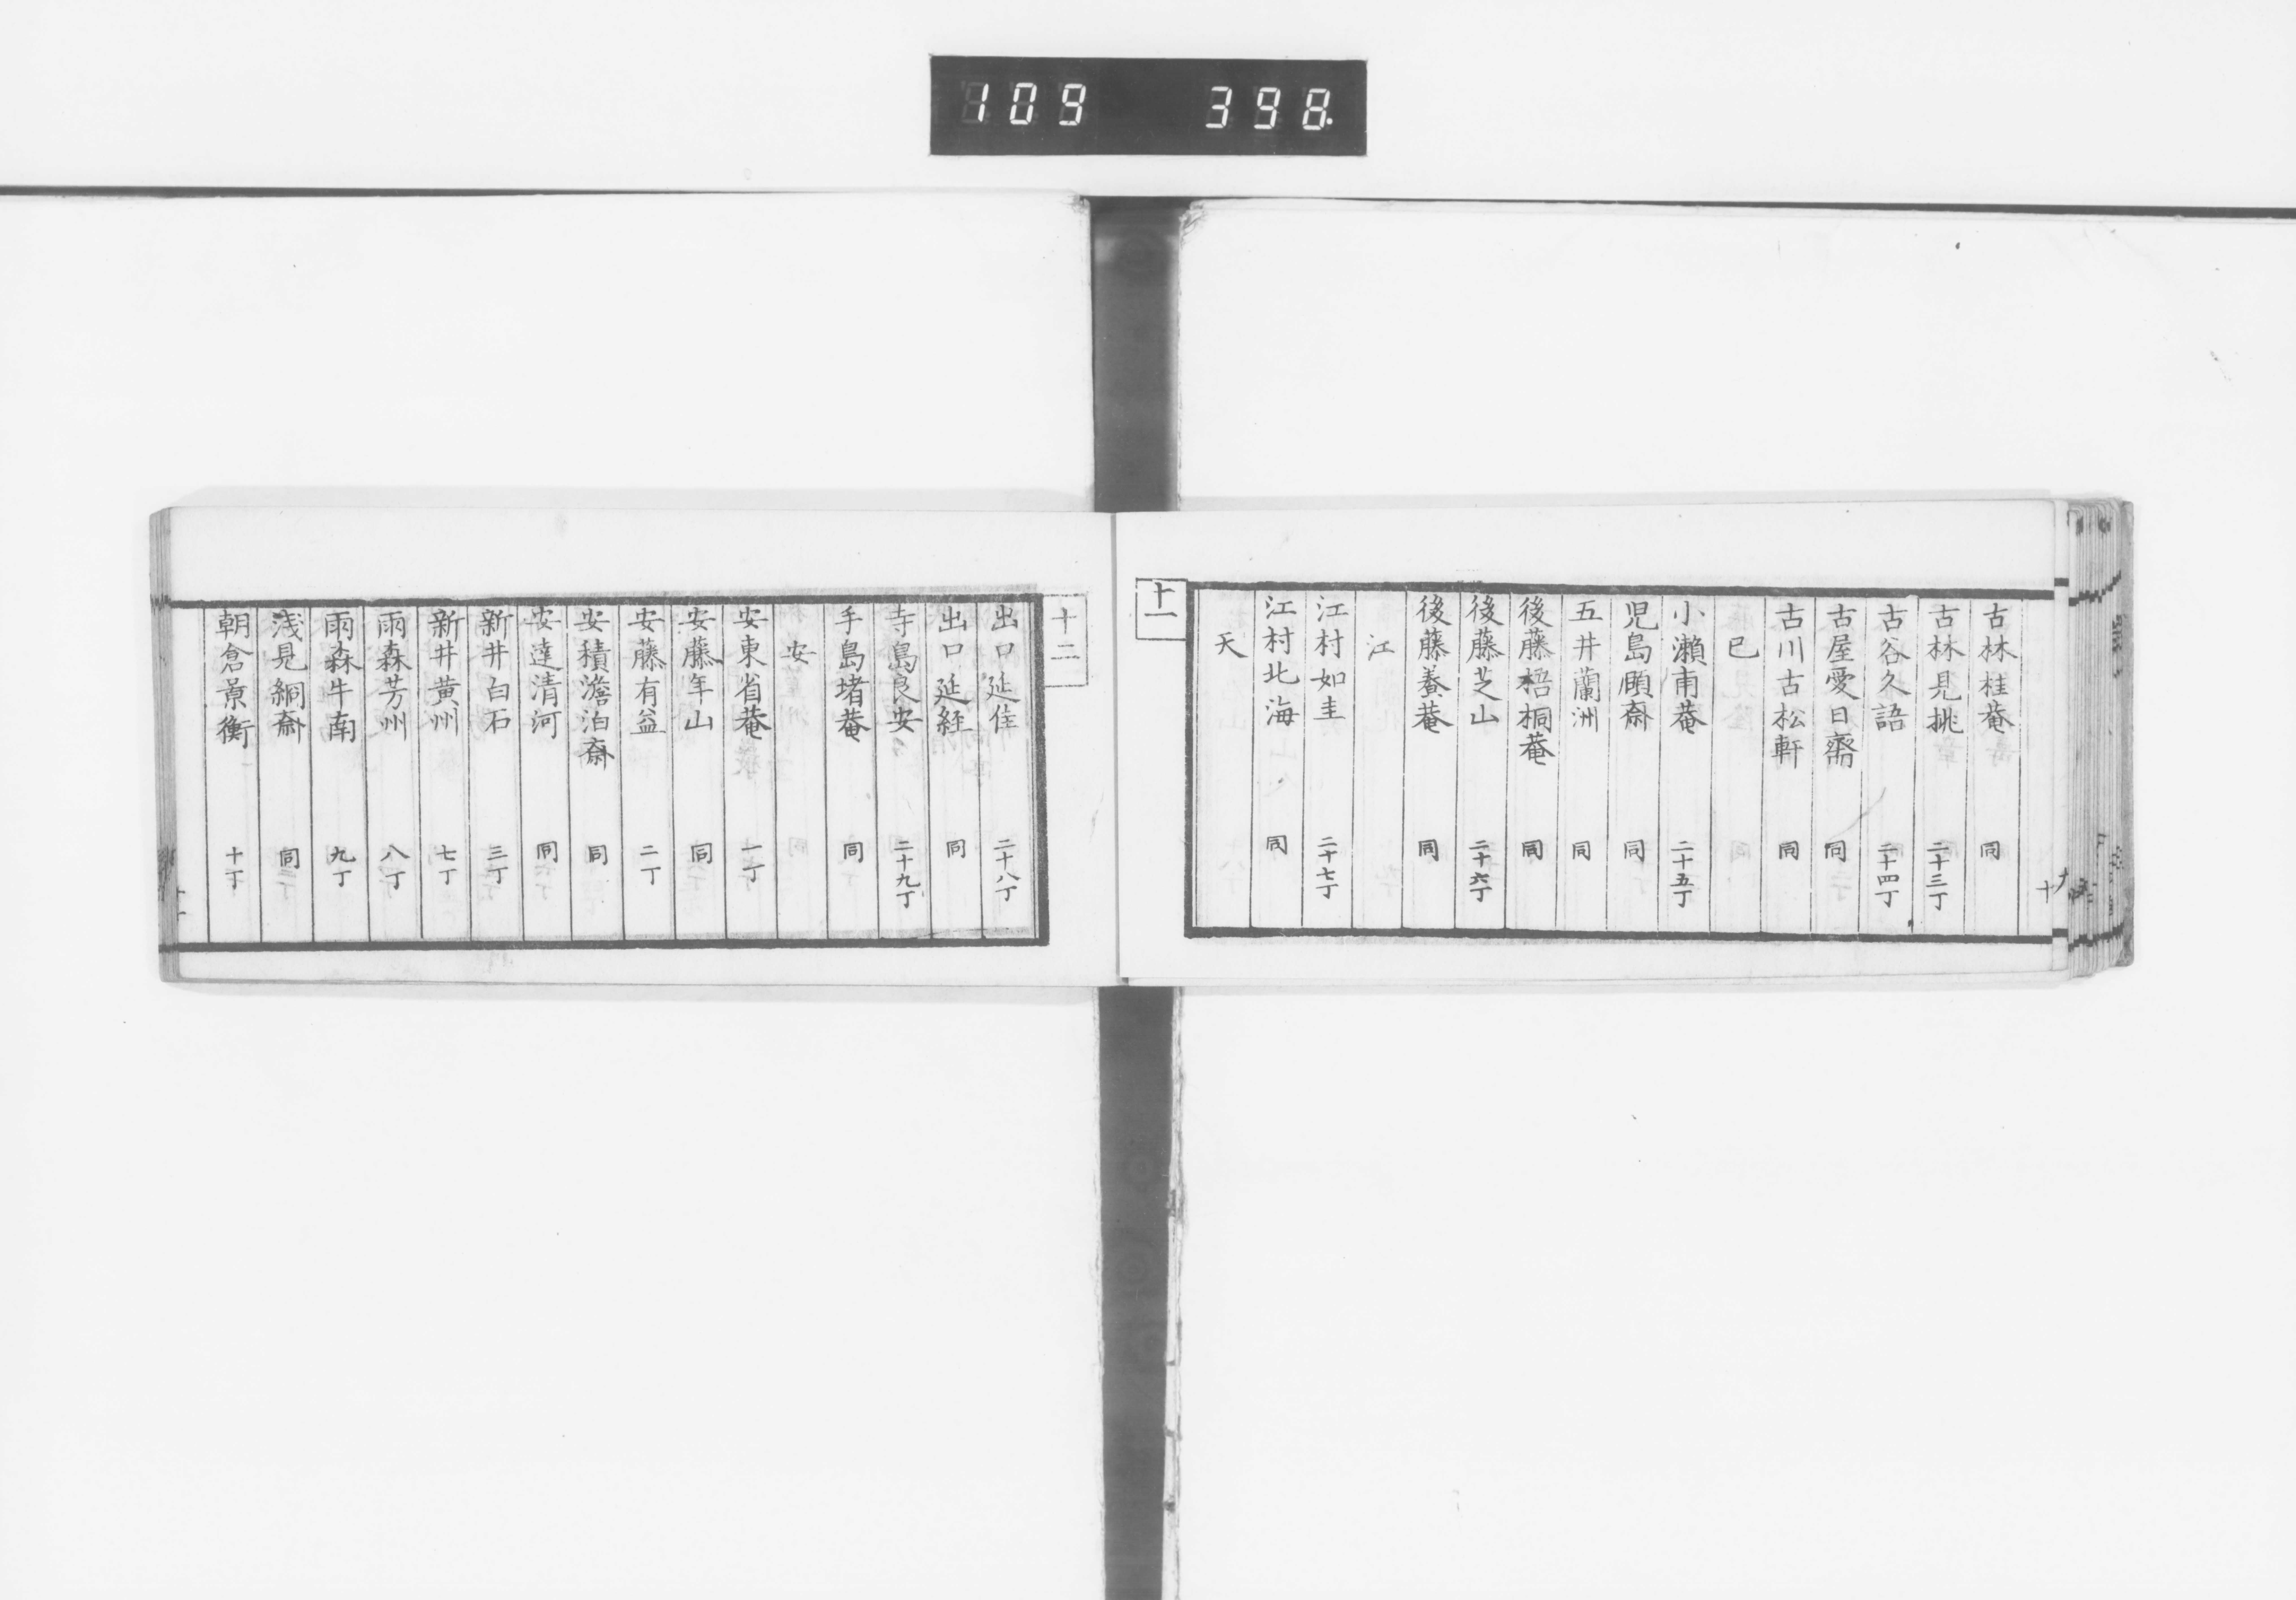 109 398
古林桂菴 同
古林見桃 二十三丁
古谷久語 二十四丁
古屋愛日齋 同
古川古松軒 同
已
小瀬甫菴 二十五丁
児島頤斎 同
五井蘭洲 同
後藤梧桐菴 同
後藤芝山 二十六丁
後藤養菴 同
江
江村如圭 二十七丁
江村北海 同
天
十一
十二
出口延佳 二十八丁
出口延経 同
寺島良安 二十九丁
手島堵菴 同
安
安東省菴 一丁
安藤年山 同
安藤有益 二丁
安積澹泊斎 同
安達清河 同
新井白石 三丁
新井黄州 七丁
雨森芳州 八丁
雨森牛南 九丁
浅見絅斎 同
朝倉景衡 十丁